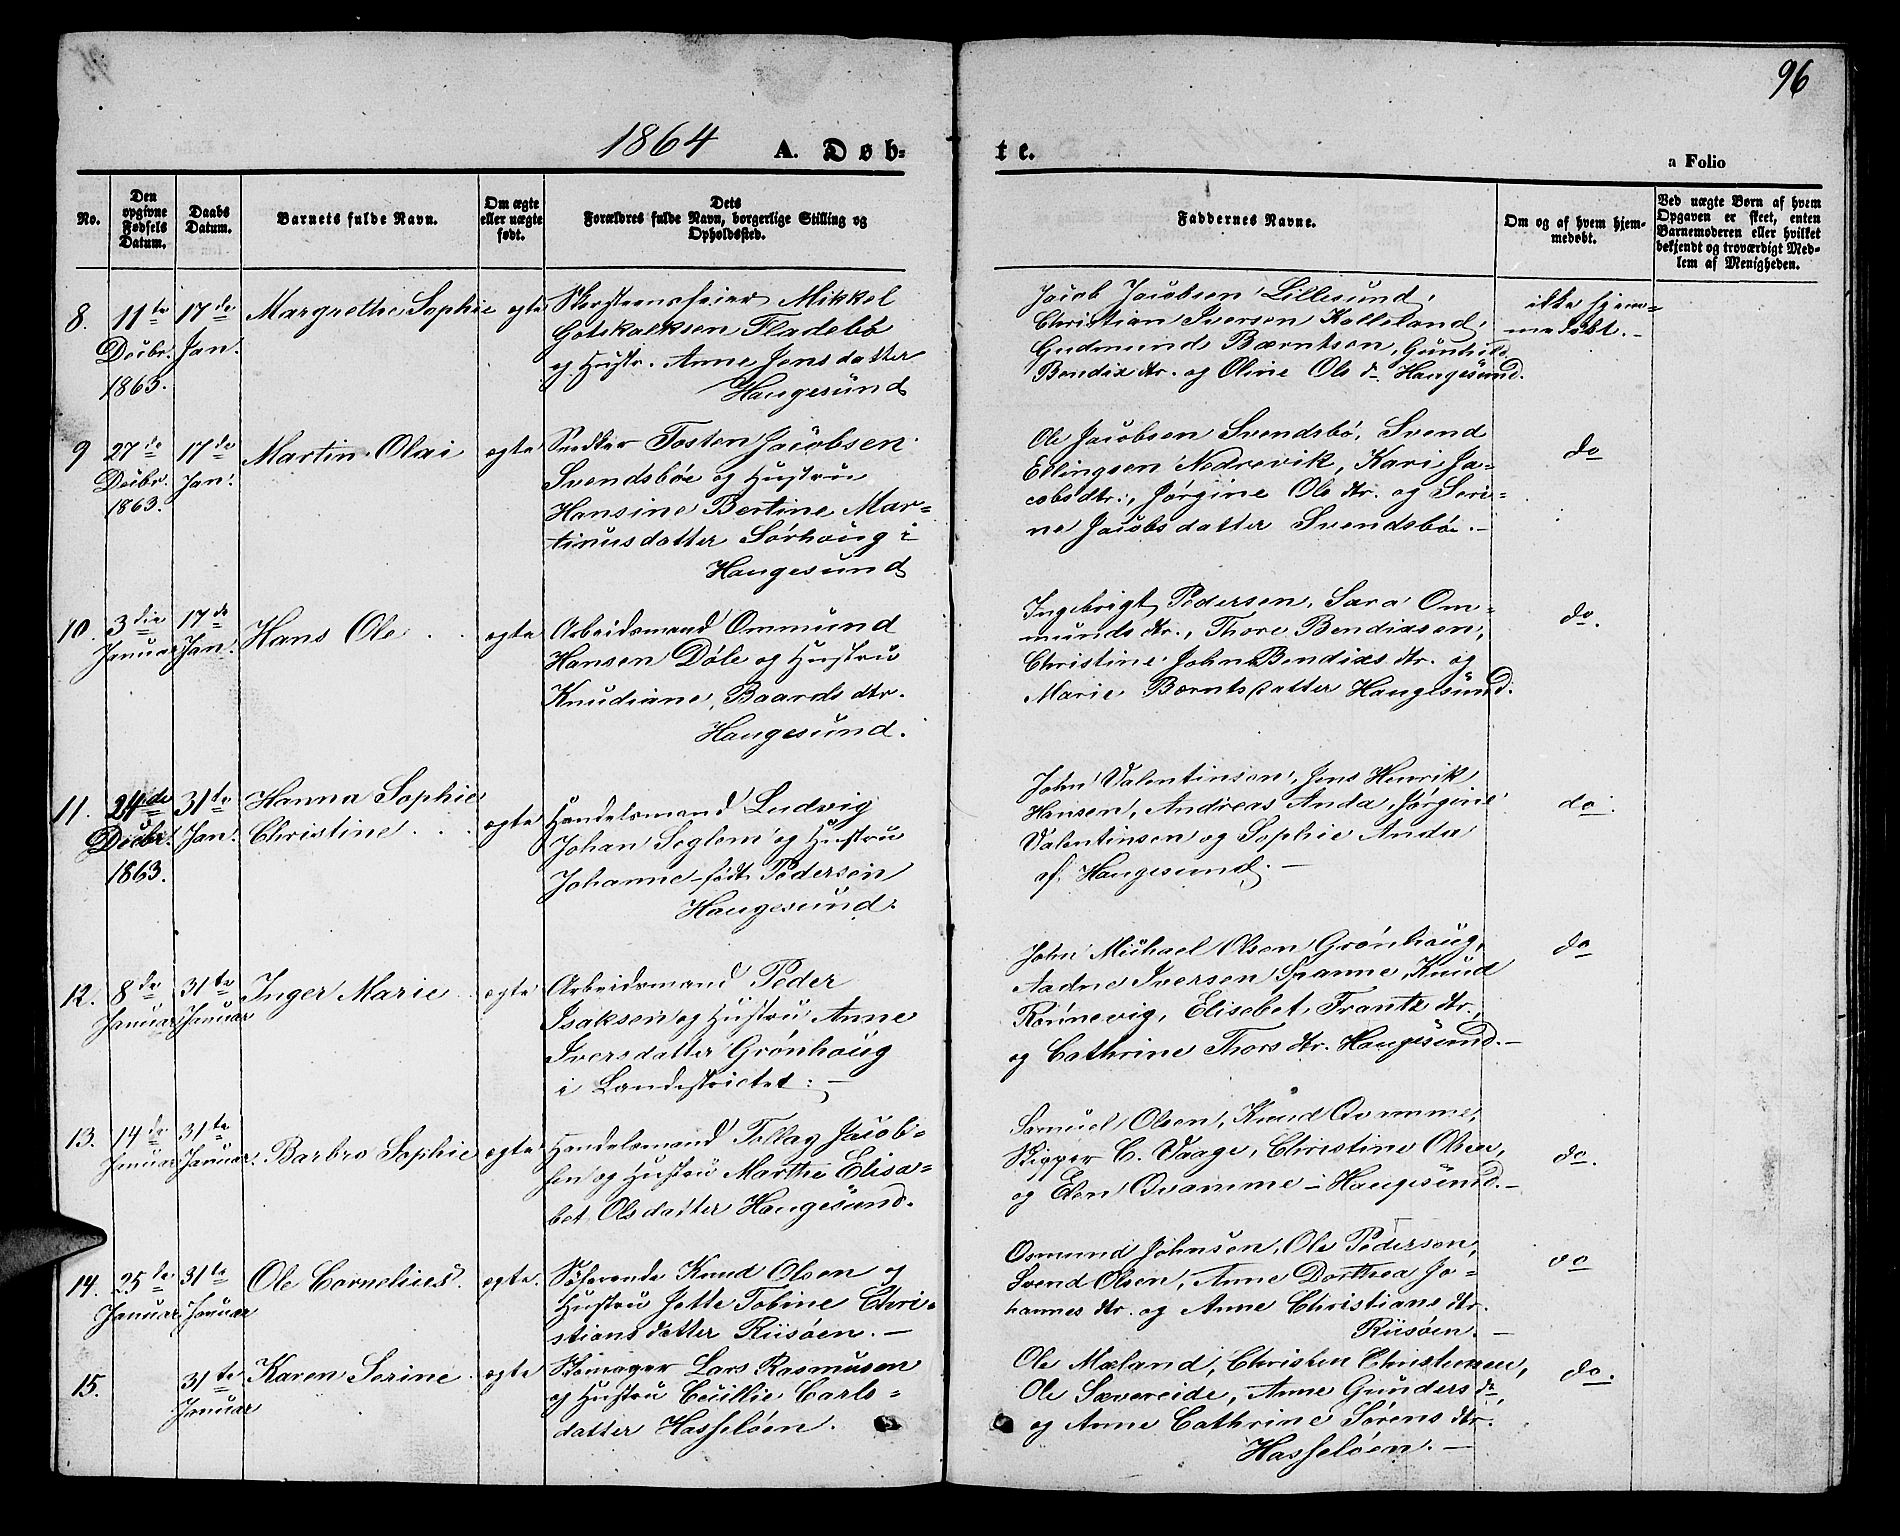 96
1864 A. Døb-
te.
a Folio
No.
Den
opgivne
Fødsels
Datum.
Daabs
Datum.
Barnets fulde Navn.
Om ægte
eller uægte
født.
Dets
Forældres fulde Navn, borgerlige Stilling og
Opholdssted.
Faddernes Navne.
Om og af hvem hjem-
medøbt.
Ved uægte Børn af hvem
Opgaven er skeet, enten
Barnemoderen eller hvilket
bekjendt og troværdigt Med-
lem af Menigheden.
8.
11te
Decbr.
1863.
17de
Jan.
Margrethe Sophie
egte
Skorsteensfeier Mikkel
Gotskalksen Fladebö
og Hustr. Anne Jensdatter
Haugesund
Jacob Jacobsen Lillesund,
Christian Iversen Kolleland,
Gudmund Bærntsen, Gunhild
Bendix dtr. og Oline Ols d. Haugesund.
ikke hjem-
medöbt.-
9
27de
Decbr.
1863.
17de
Jan.
Martin Olai
egte
Snedker Tosten Jacobsen
Svendsböe og Hustru
Hansine Bertine Mar-
tinusdatter Sørhaug i
Haugesund
Ole Jacobsen Svendsbö, Svend
Ellingsen Nedrevik, Kari Ja-
cobsdtr., Jørgine Ols dtr. og Seri-
ne Jacobsdatter Svendsböe.-
do
10.
3die
Januar
17de
Jan.
Hans Ole
egte
Arbeidsmand Ommund
Hansen Døle og Hustru
Knudiane Baards dtr.
Haugesund.
Ingebrigt Pedersen, Sara Om-
munds dtr., Thore Bendixsen,
Christine John Bendixs dtr. og
Marie Bærntsdatter Haugesund.
do.
11.
24de
Decbr.
1863.
31te
Jan.
Hanna Sophie
Christine
egte
Handelsmand Ludvig
Johan Seglem og Hustru
Johanne født Pedersen
Haugesund.
John Valentinsen, Jens Henrik
Hansen, Andreas Anda, Jørgine
Valentinsen og Sophie Anda
af Haugesund.-
do.
12.
8de
Januar
31te
Januar
Inger Marie
egte
Arbeidsmand Peder
Isaksen og Hustru Anne
Iversdatter Grønhaug
i Landistrictet.-
John Michael Olsen Grønhaug,
Aadne Iversen Spanne, Knud
Rönnevig, Elisebet Frantz dtr.,
og Cathrine Thors dtr. Haugesund.-
do
13.
14de
Januar
31te
Januar.
Barbro Sophie
egte
Handelsmand Tollag Jacob-
sen og Hustru Marthe Elisa-
bet Olsdatter Haugesund.
Samuel Olsen, Knud Qvamme,
Skipper C. Vaage, Christine Olsen,
og Elen Qvamme - Haugesund.-
do.
14.
25te
Januar
31te
Januar
Ole Cornelius.
egte.
Söfarende Knud Olsen og
Hustru Jette Tobine Chri-
stiansdatter Riisöen.-
Osmund Johnsen, Ole Pedersen,
Svend Olsen, Anne Dorthea Jo-
hannes dtr. og Anne Christians dtr.
Riisöen.-
do
15.
31te
Januar
Karen Serine
egte
Skomager Lars Rasmusen
og Hustru Cecillie Carls-
datter Hasselöen.
Ole Mæland, Christen Christensen,
Ole Sævereide, Anne Gunders d.,
og Anne Cathrine Sörens dtr.
Hasselöen.-
do.